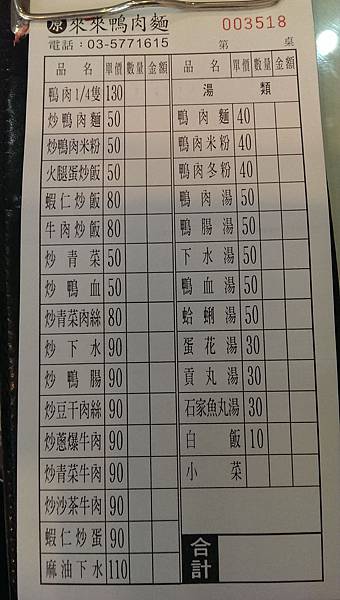 原 來來鴨肉麵 003518
電話：03-5771615 第 桌
品名 單價 數量 金額
鴨肉1/4隻 130
炒鴨肉麵 50
炒鴨肉米粉 50
火腿蛋炒飯 50
蝦仁炒飯 80
牛肉炒飯 80
炒青菜 50
炒鴨血 50
炒青菜肉絲 80
炒下水 90
炒鴨腸 90
炒豆干肉絲 90
炒蔥爆牛肉 90
炒青菜牛肉 90
炒沙茶牛肉 90
蝦仁炒蛋 90
麻油下水 110
品名 單價 數量 金額
湯類
鴨肉麵 40
鴨肉米粉 40
鴨肉冬粉 40
鴨肉湯 50
鴨腸湯 50
下水湯 50
鴨血湯 50
蛤蜊湯 50
蛋花湯 30
貢丸湯 30
石家魚丸湯 30
白飯 10
小菜
合計